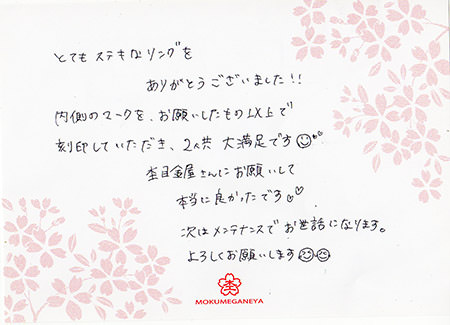 とてもステキなリングを
ありがとうございました!!
内側のマークを、お願いしたもの以上で
刻印していただき、2人共 大満足です
杢目金屋さんにお願いして
本当に良かったです
次はメンテナンスでお世話になります。
よろしくお願いします
MOKUMEGANEYA